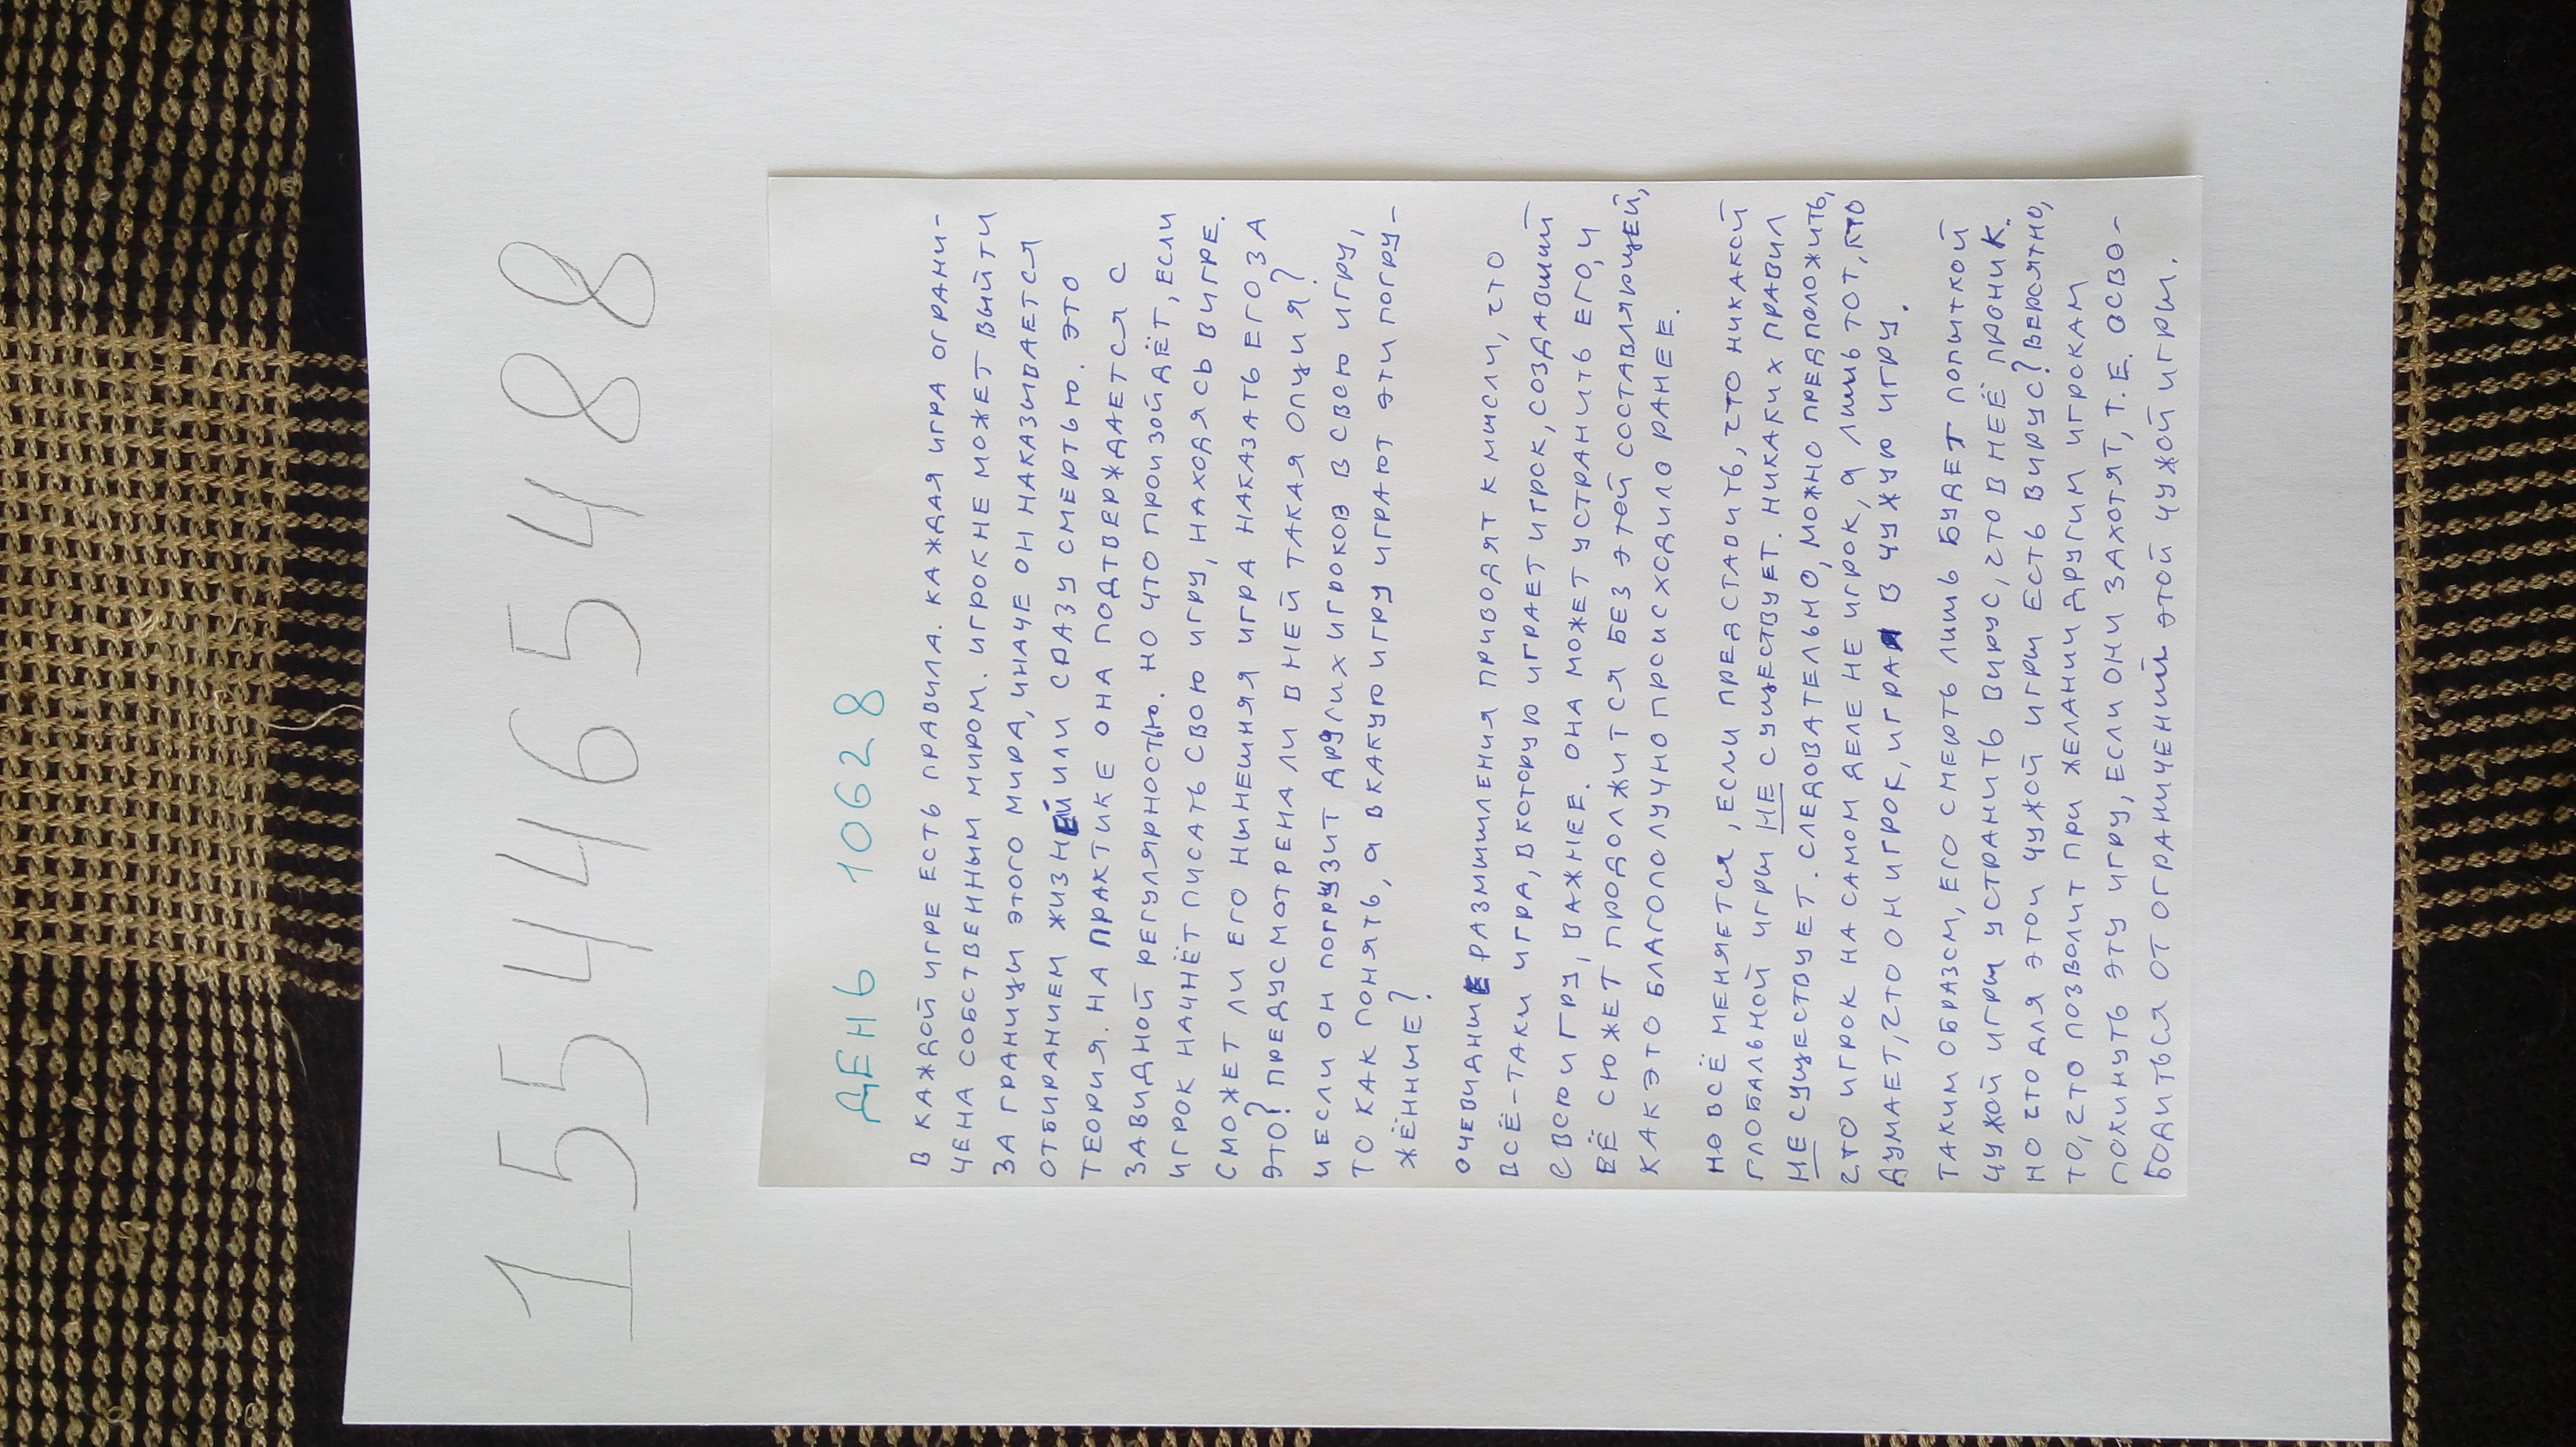 15546548 8
ДЕНЬ 10628
В КАЖДОЙ ИГРЕ ЕСТЬ ПРАВИЛА. КАЖДАЯ ИГРА ОГРАНИ-
ЧЕНА СОБСТВЕННЫМ МИРОМ. ИГРОК НЕ МОЖЕТ ВЫЙТИ
ЗА ГРАНИЦЫ ЭТОГО МИРА, ИНАЧЕ ОН НАКАЗЫВАЕТСЯ
ОТБИРАНИЕМ ЖИЗНЕЙ ИЛИ СРАЗУ СМЕРТЬЮ. ЭТО
ТЕОРИЯ. НА ПРАКТИКЕ ОНА ПОДТВЕРЖДАЕТСЯ С
ЗАВИДНОЙ РЕГУЛЯРНОСТЬЮ. НО ЧТО ПРОИЗОЙДЁТ, ЕСЛИ
ИГРОК НАЧНЁТ ПИСАТЬ СВОЮ ИГРУ, НАХОДЯСЬ В ИГРЕ.
СМОЖЕТ ЛИ ЕГО НЫНЕШНЯЯ ИГРА НАКАЗАТЬ ЕГО ЗА
ЭТО? ПРЕДУСМОТРЕНА ЛИ В НЕЙ ТАКАЯ ОПЦИЯ?
И ЕСЛИ ОН ПОГРУЗИТ ДРУГИХ ИГРОКОВ В СВОЮ ИГРУ,
ТО КАК ПОНЯТЬ, А В КАКУЮ ИГРУ ИГРАЮТ ЭТИ ПОГРУ-
ЖЁННЫЕ?
ОЧЕВИДНЫЕ РАЗМЫШЛЕНИЯ ПРИВОДЯТ К МЫСЛИ, ЧТО
ВСЁ-ТАКИ ИГРА, В КОТОРУЮ ИГРАЕТ ИГРОК, СОЗДАВШИЙ
СВОЮ ИГРУ, ВАЖНЕЕ. ОНА МОЖЕТ УСТРАНИТЬ ЕГО, И
ЕЁ СЮЖЕТ ПРОДОЛЖИТСЯ БЕЗ ЭТОЙ СОСТАВЛЯЮЩЕЙ,
КАК ЭТО БЛАГОПОЛУЧНО ПРОИСХОДИЛО РАНЕЕ.
НО ВСЁ МЕНЯЕТСЯ, ЕСЛИ ПРЕДСТАВИТЬ, ЧТО НИКАКОЙ
ГЛОБАЛЬНОЙ ИГРЫ НЕ СУЩЕСТВУЕТ. НИКАКИХ ПРАВИЛ
НЕ СУЩЕСТВУЕТ. СЛЕДОВАТЕЛЬНО, МОЖНО ПРЕДПОЛОЖИТЬ,
ЧТО ИГРОК НА САМОМ ДЕЛЕ НЕ ИГРОК, А ЛИШЬ ТОТ, КТО
ДУМАЕТ, ЧТО ОН ИГРОК, ИГРАЯ В ЧУЖУЮ ИГРУ.
ТАКИМ ОБРАЗОМ, ЕГО СМЕРТЬ ЛИШЬ БУДЕТ ПОПЫТКОЙ
ЧУЖОЙ ИГРЫ УСТРАНИТЬ ВИРУС, ЧТО В НЕЁ ПРОНИК.
НО ЧТО ДЛЯ ЭТОЙ ЧУЖОЙ ИГРЫ ЕСТЬ ВИРУС? ВЕРОЯТНО,
ТО, ЧТО ПОЗВОЛИТ ПРИ ЖЕЛАНИИ ДРУГИМ ИГРОКАМ
ПОКИНУТЬ ЭТУ ИГРУ, ЕСЛИ ОНИ ЗАХОТЯТ, Т.Е. ОСВО-
БОДИТЬСЯ ОТ ОГРАНИЧЕНИЙ ЭТОЙ ЧУЖОЙ ИГРЫ.